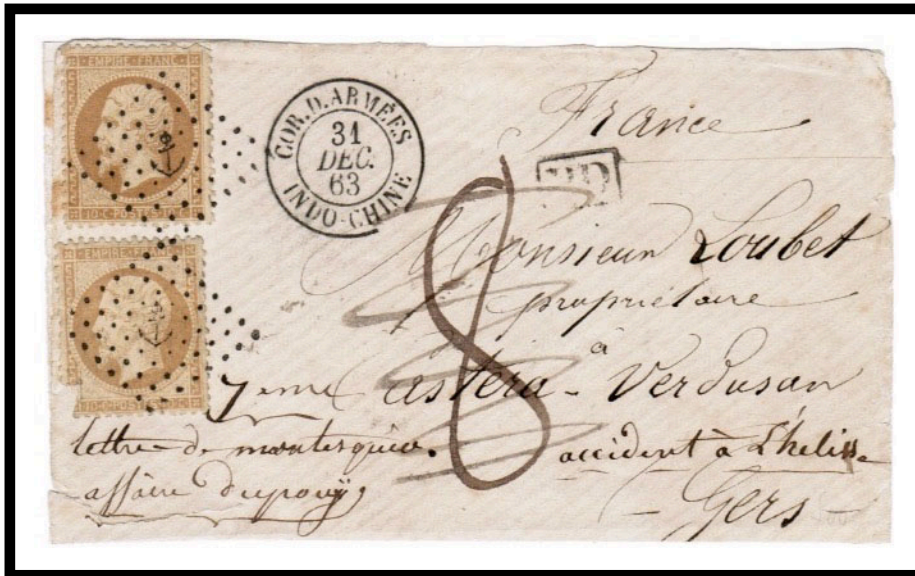 EMPIRE FRANC
10 C POSTES 10 C
EMPIRE FRANC
10 C POSTES 10 C
COR. D. ARMÉES
31
DEC.
63
INDO-CHINE
France
PD
8
Monsieur Loubet
propriétaire
à
Castéra-Verdusan
7eme
lettre de montesquieu.
affaire dupouÿ
accident à L'helisse
Gers